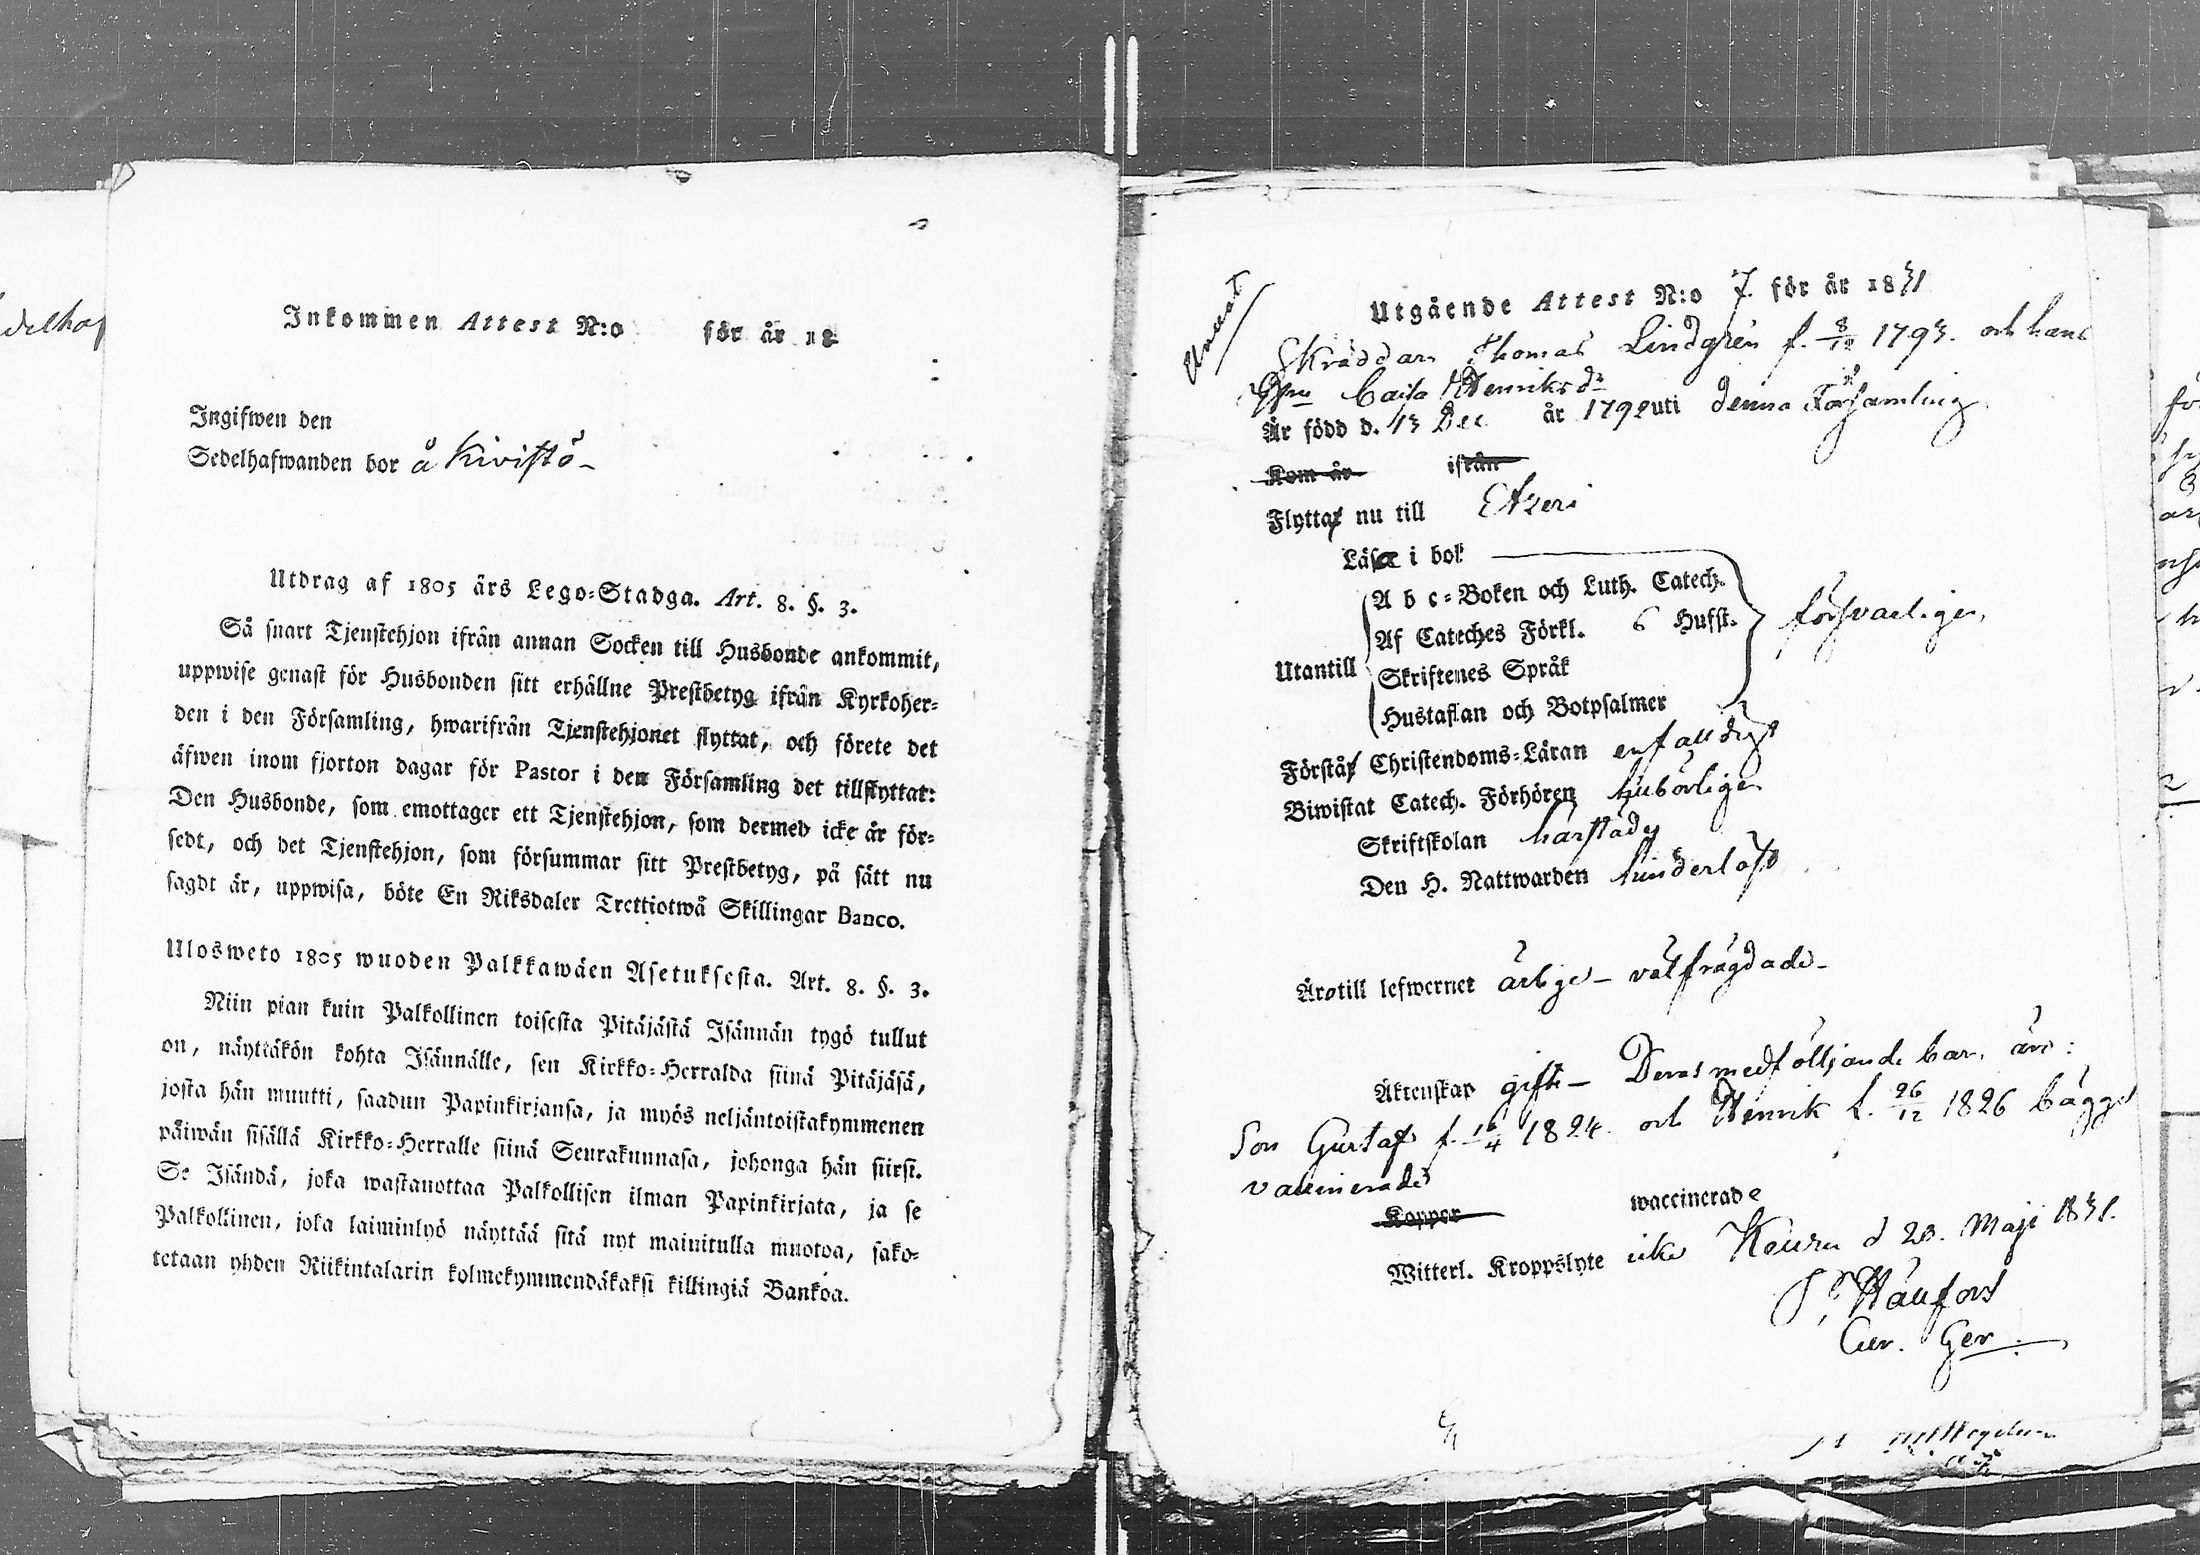 Inkommen Attest N:o för år 18
Ingifwen den
Sedelhafwanden bor å Kivistö
Utdrag af 1805 års Lego-Stadga. Art. 8. §. 3.
Så snart Tjenstehjon ifrån annan Socken till Husbonde ankommit,
uppwise genast för Husbonden sitt erhållne Prestbetyg ifrån Kyrkoher-
den i den Församling, hwarifrån Tjenstehjonet flyttat, och förete det
äfwen inom fjorton dagar för Pastor i den Församling det tillflyttat:
Den Husbonde, som emottager ett Tjenstehjon, som dermed icke är för-
sedt, och det Tjenstehjon, som försummar sitt Prestbetyg, på sätt nu
sagdt är, uppwisa, böte En Riksdaler Trettiotwå Skillingar Banco.
Ulosweto 1805 wuoden Palkkawäen Asetuksesta. Art. 8. §. 3.
Niin pian kuin Palkollinen toisesta Pitäjästä Isännän tygö tullut
on, näyttäkön kohta Isännälle, sen Kirkko-Herralda siinä Pitäjäsä,
josta hän muutti, saadun Papinkirjansa, ja myös neljäntoistakymmenen
päiwän sisällä Kirkko-Herralle siinä Seurakunnasa, johonga hän siirsi.
Se Isändä, joka wastanottaa Palkollisen ilman Papinkirjata, ja se
Palkollinen, joka laiminlyö näyttää sitä nyt mainitulla muotoa, sako-
tetaan yhden Riikintalarin kolmekymmendäkaksi killingiä Bankoa.
Utgående Attest N:o 7. för år 1831
Skräddarn Thomas Lindgren f. 8/10 1793. och hans
Caisa Henriksdr
Är född d. 13 Dec år 1792 uti denna Församling
Kom år ifrån
Flyttar nu till Etzeri
Läsa i bok
A b c-Boken och Luth. Catech.
Af Cateches Förkl. 6 Hufst.
försvarligen
Utantill
Skriftenes Språk
Hustaflan och Botpsalmer
Förstår Christendoms-Läran enfalldigt
Biwistat Catech. Förhören behörligen
Skriftskolan härstädes
Den H. Nattwarden hinderlöst
Äro till lefwernet ärlige - välfrägdade -
Äktenskap gifte - Deras medföljande barn äro:
Son Gustaf f. 16/4 1824. och Henrik f. 26/12 1826 bägge
vaccinerade
Koppor waccinerade
Witterl. Kroppslyte icke Keuru d 20. Maji 1831.